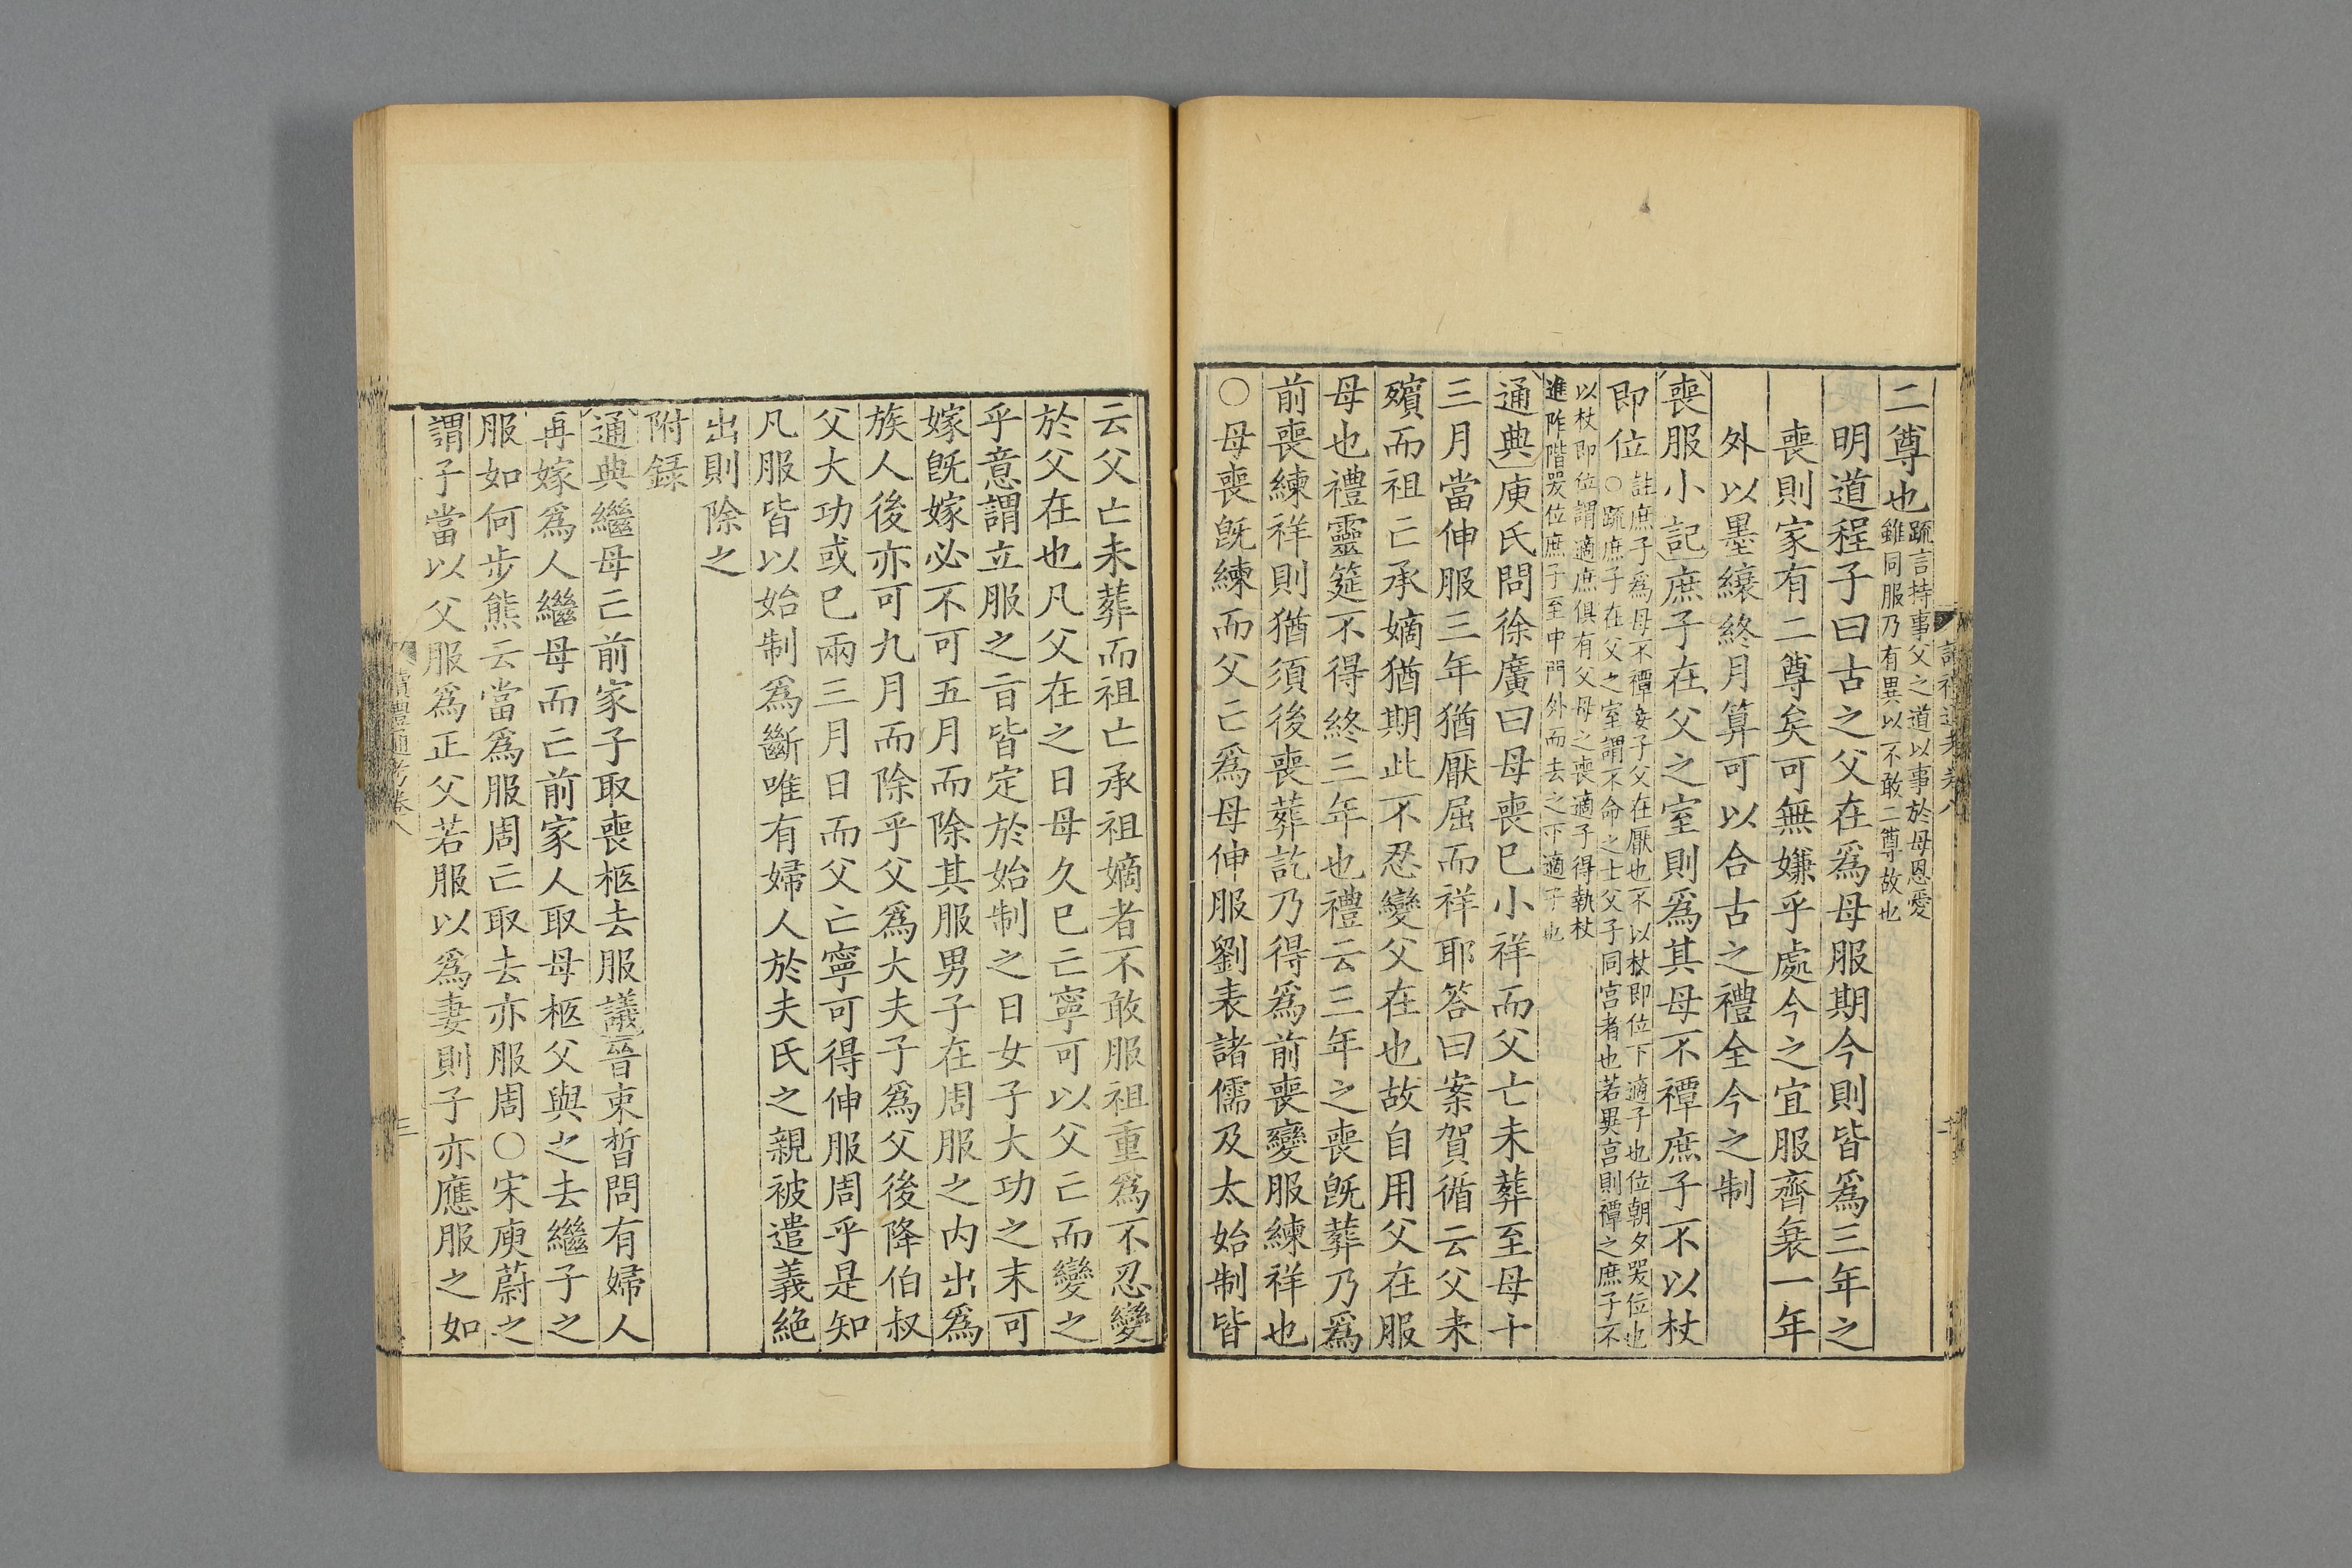 讀禮通考卷八
二尊也疏言持事父之道以事於母恩愛
雖同服乃有異以不敢二尊故也
明道程子曰古之父在爲母服期今則皆爲三年之
喪則家有二尊矣可無嫌乎處今之宜服齊衰一年
外以墨縗終月算可以合古之禮全今之制
喪服小記庶子在父之室則爲其母不禫庶子不以杖
即位註庶子爲母不禫妾子父在厭也不以杖即位下適子也位朝夕哭位也
○疏庶子在父之室謂不命之士父子同宮者也若異宮則禫之庶子不
以杖即位謂適庶俱有父母之喪適子得執杖
進阼階哭位庶子至中門外而去之下適子也
通典庾氏問徐廣曰母喪巳小祥而父亡未葬至母十
三月當伸服三年猶厭屈而祥耶答曰案賀循云父未
殯而祖亡承嫡猶期此不忍變父在也故自用父在服
母也禮靈筵不得終三年也禮云三年之喪旣葬乃爲
前喪練祥則猶須後喪葬訖乃得爲前喪變服練祥也
○母喪旣練而父亡爲母伸服劉表諸儒及太始制皆
云父亡未葬而祖亡承祖嫡者不敢服祖重爲不忍變
於父在也凡父在之日母久巳亡寧可以父亡而變之
乎意謂立服之㫖皆定於始制之日女子大功之末可
嫁旣嫁必不可五月而除其服男子在周服之内出爲
族人後亦可九月而除乎父爲大夫子爲父後降伯叔
父大功或巳兩三月日而父亡寧可得伸服周乎是知
凡服皆以始制爲斷唯有婦人於夫氏之親被遣義絶
出則除之
附錄
通典繼母亡前家子取喪柩去服議晉束晳問有婦人
再嫁爲人繼母而亡前家人取母柩父與之去繼子之
服如何步熊云當爲服周亡取去亦服周○宋庾蔚之
謂子當以父服爲正父若服以爲妻則子亦應服之如
讀禮通考卷八
三